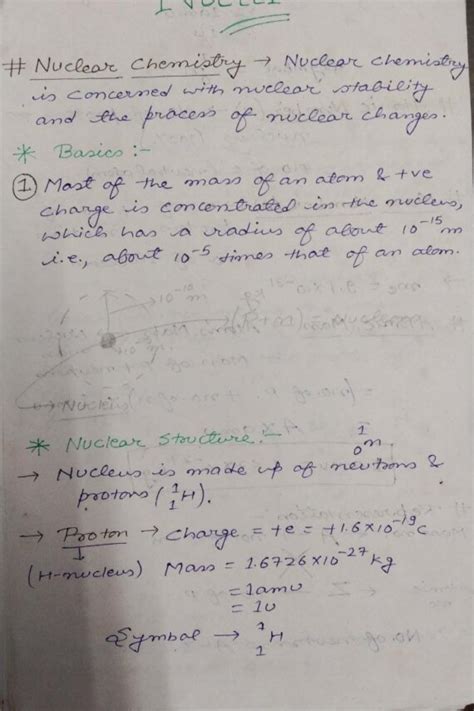 # Nuclear Chemistry → Nuclear chemistry
is concerned with nuclear stability
and the process of nuclear changes.
* Basics :-
① Most of the mass of an atom & +ve
charge is concentrated in the nucleus,
which has a radius of about 10⁻¹⁵m
i.e., about 10⁻⁵ times that of an atom.
* Nuclear Structure :-
→ Nucleus is made up of neutrons & ¹₀n
protons (¹₁H).
→ Proton → Charge = +e = +1.6×10⁻¹⁹C
(H-nucleus) Mass = 1.6726×10⁻²⁷ kg
= 1amu
= 1u
Symbol → ¹₁H